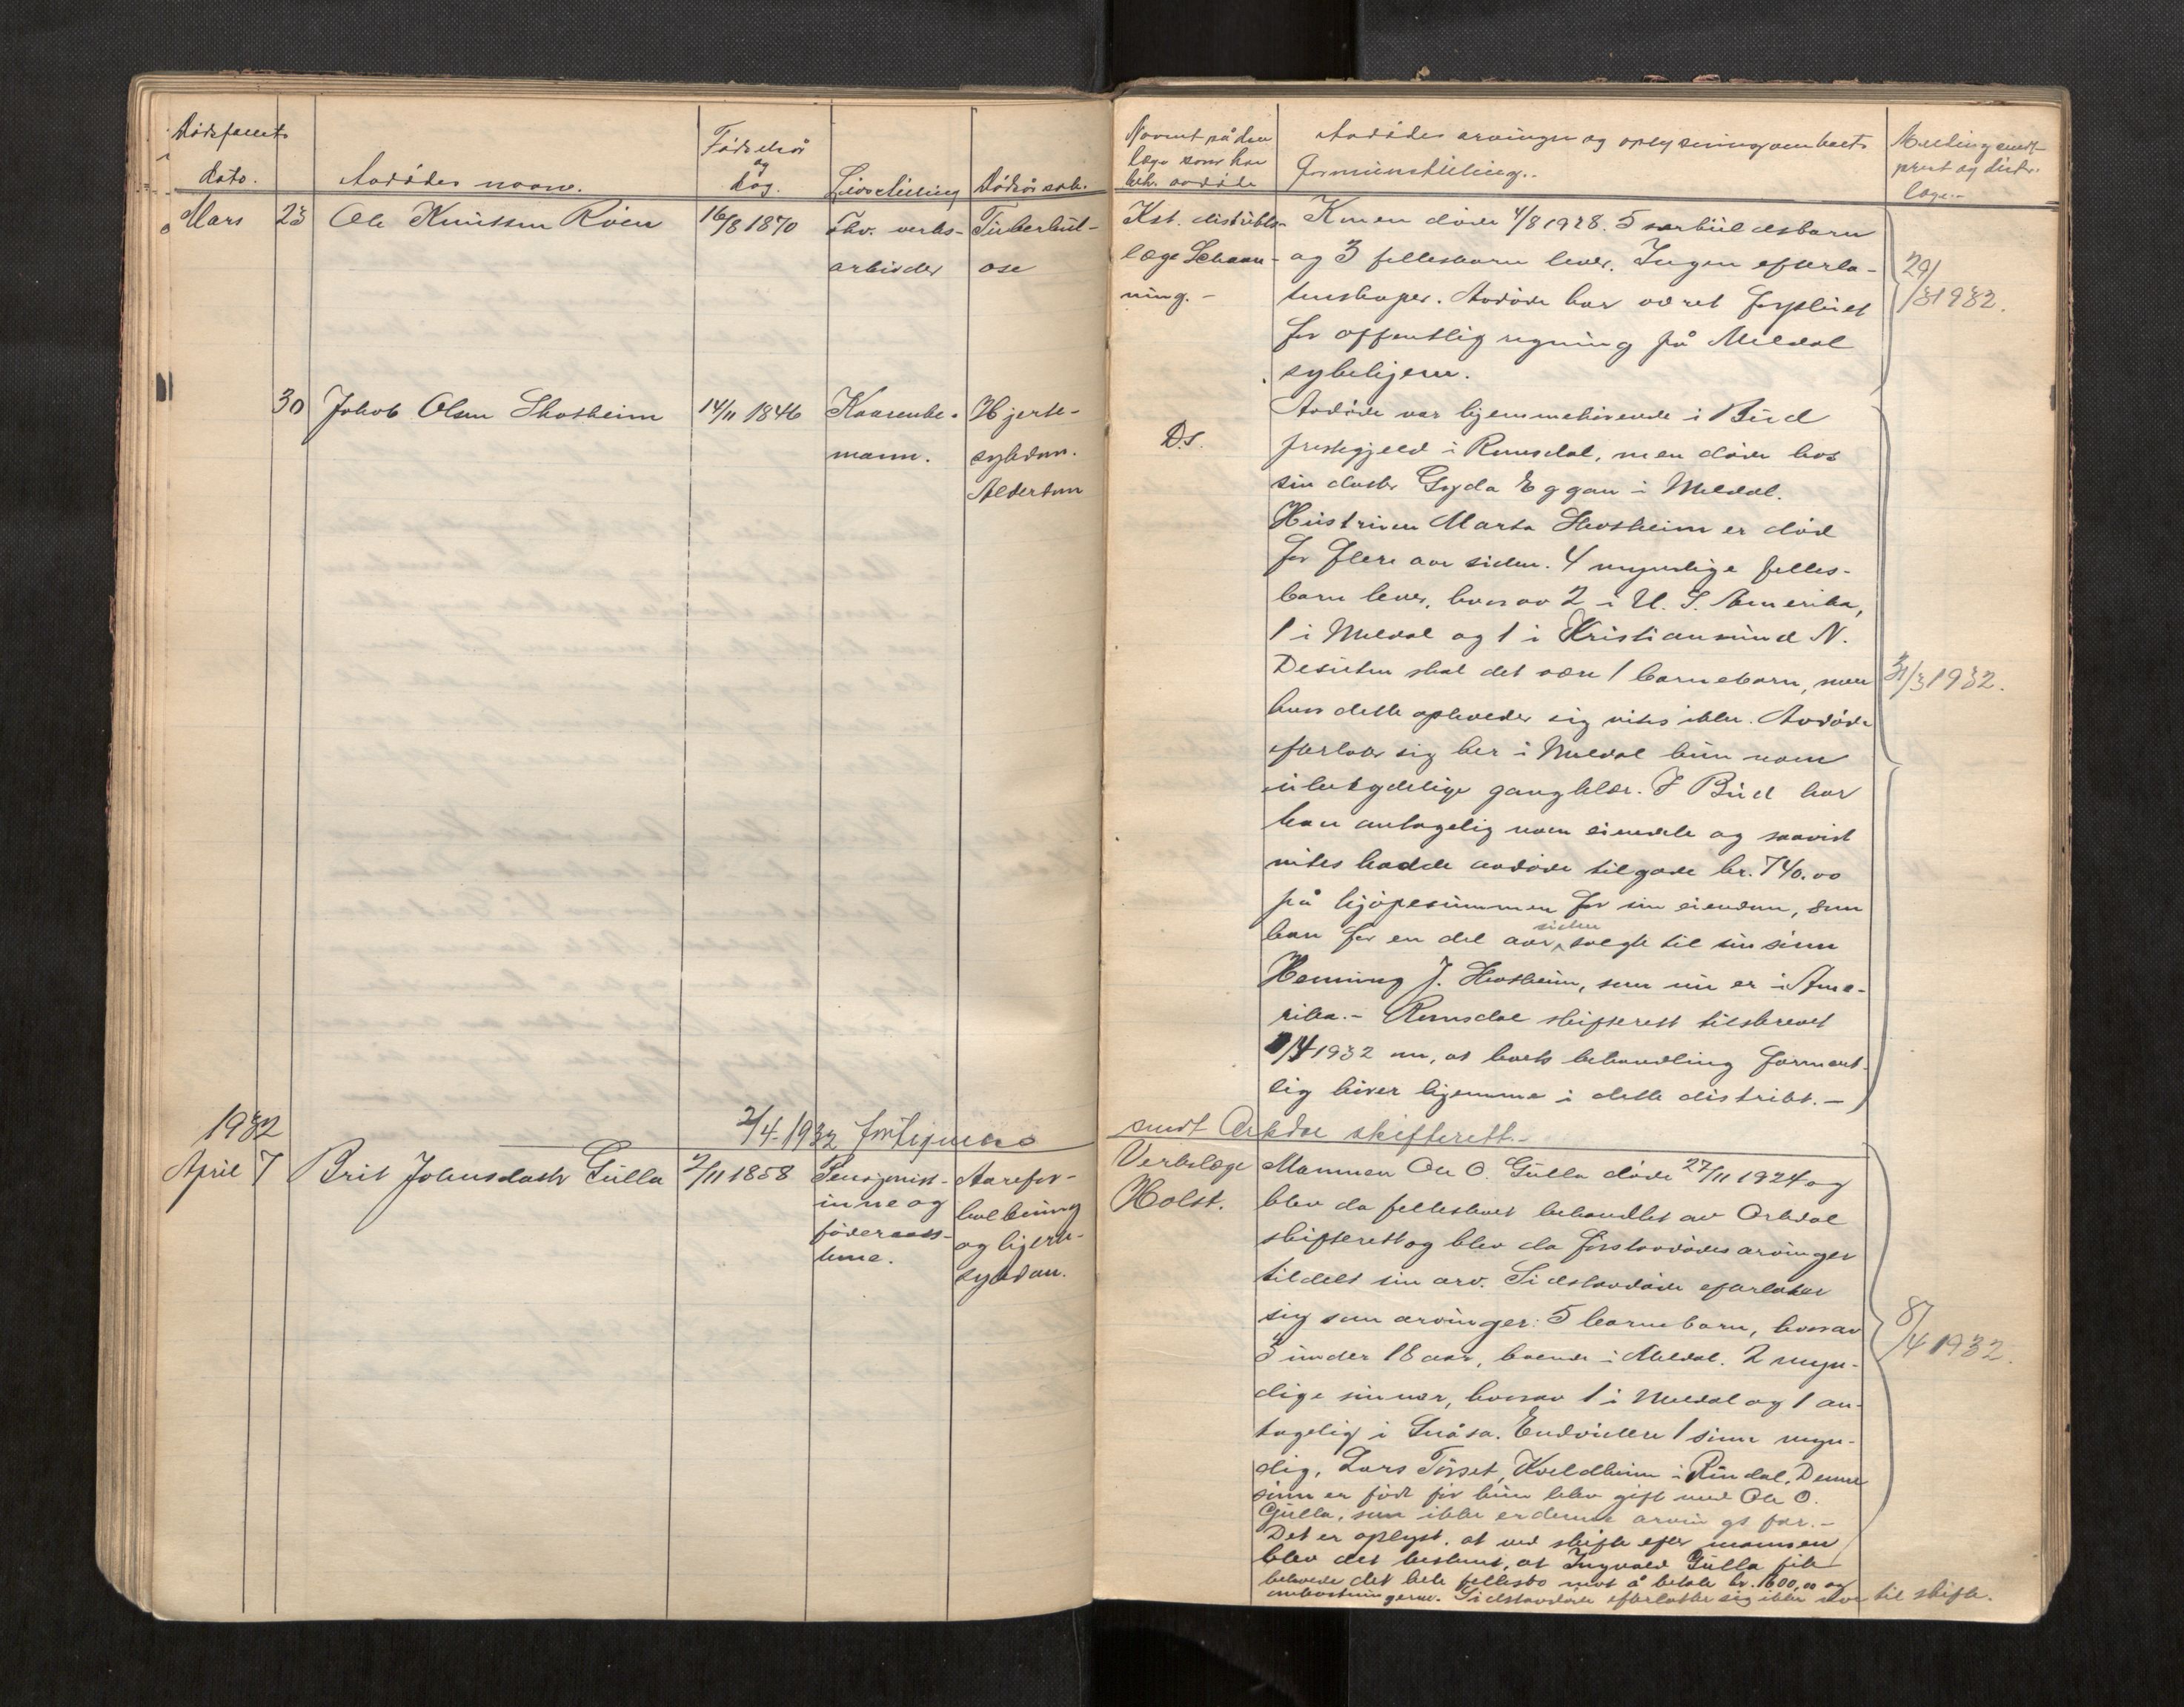 Dødsfallets
dato.
Avdødes navn.
Fødselsår
og
dag.
Livsstilling
Dødsårsak.
Navnet på den
læge som har
beh. avdøde
Avdødes arvinger og oplysning om boets
formuesstilling.
Melding sendt
prest og distr.
læge.
Mars 23 Ole Knutsen Røen 16/8 1870 Fhv. verks-
arbeider
Tuberkul-
ose
Kst. distrikts-
læge Schaan-
ning. -
Konen døde 4/8 1928. 5 særkuldsbarn
og 3 fellesbarn lever. Ingen efterla-
tenskaper. Avdøde har været forpleiet
for offentlig regning på Meldal
sykehjem.
29/3 1932.
30 Jakob Olsen Skotheim 14/11 1846 Kaarenke-
mann.
Hjerte-
sykdom.
Alderdom
D.s.
Avdøde var hjemmehørende i Bud
prestegjeld i Romsdal, men døde hos
sin datter Gyda Eggan i Meldal.
Hustruen Marta Skotheim er død
for flere aar siden. 4 myndige felles-
barn lever, hvorav 2 i U. S. Amerika,
1 i Meldal og 1 i Kristiansund N.
Desuten skal det være 1 barnebarn, men
hvor dette opholder sig vites ikke. Avdøde
efterlater sig her i Meldal kun noen
ubetydelige gangklær. I Bud har
han antagelig noen eiendele og saavidt
vites hadde avdøde tilgode kr. 740.00
på kjøpesummen for sin eiendom, som
han for en del aar siden solgte til sin sønn
Henning J. Skotheim, som nu er i Ame-
rika. - Romsdal skifterett tilskrevet
/4 1932 om, at boets behandling forment-
lig hører hjemme i dette distrikt. -
31/3 1932.
2/4-1932 fortegnelse
sendt Orkdal skifterett. -
1932
April 7 Brit Johnsdatter Gulla 2/11 1858 Pensjonist-
inne og
føderaads-
kone.
Aarefor-
kalkning
og hjerte-
sykdom.
Verkslæge
Holst.
Mannen Ole O. Gulla døde 27/11 1924 og
blev da fellesboet behandlet av Orkdal
skifterett og blev da førstavdødes arvinger
tildelt sin arv. Sidstavdøde efterlater
sig som arvinger: 5 barnebarn, hvorav
3 under 18 aar, boende i Meldal. 2 myn-
dige sønner, hvorav 1 i Meldal og 1 an-
tagelig i Snåsa. Endvidere 1 sønn myn-
dig, Lars Tørset, Kveldheim i Rindal. Denne
sønn er født før hun blev gift med Ole O.
Gulla, som ikke er denne arvings far. -
Det er oplyst, at ved skifte efter mannen
blev det bestemt, at Ingvald Gulla fikk
beholde det hele fellesbo mot å betale kr. 1600,00 og
omkostningerne. Sidstavdøde efterlater sig ikke noe til skifte.
8/4 1932.